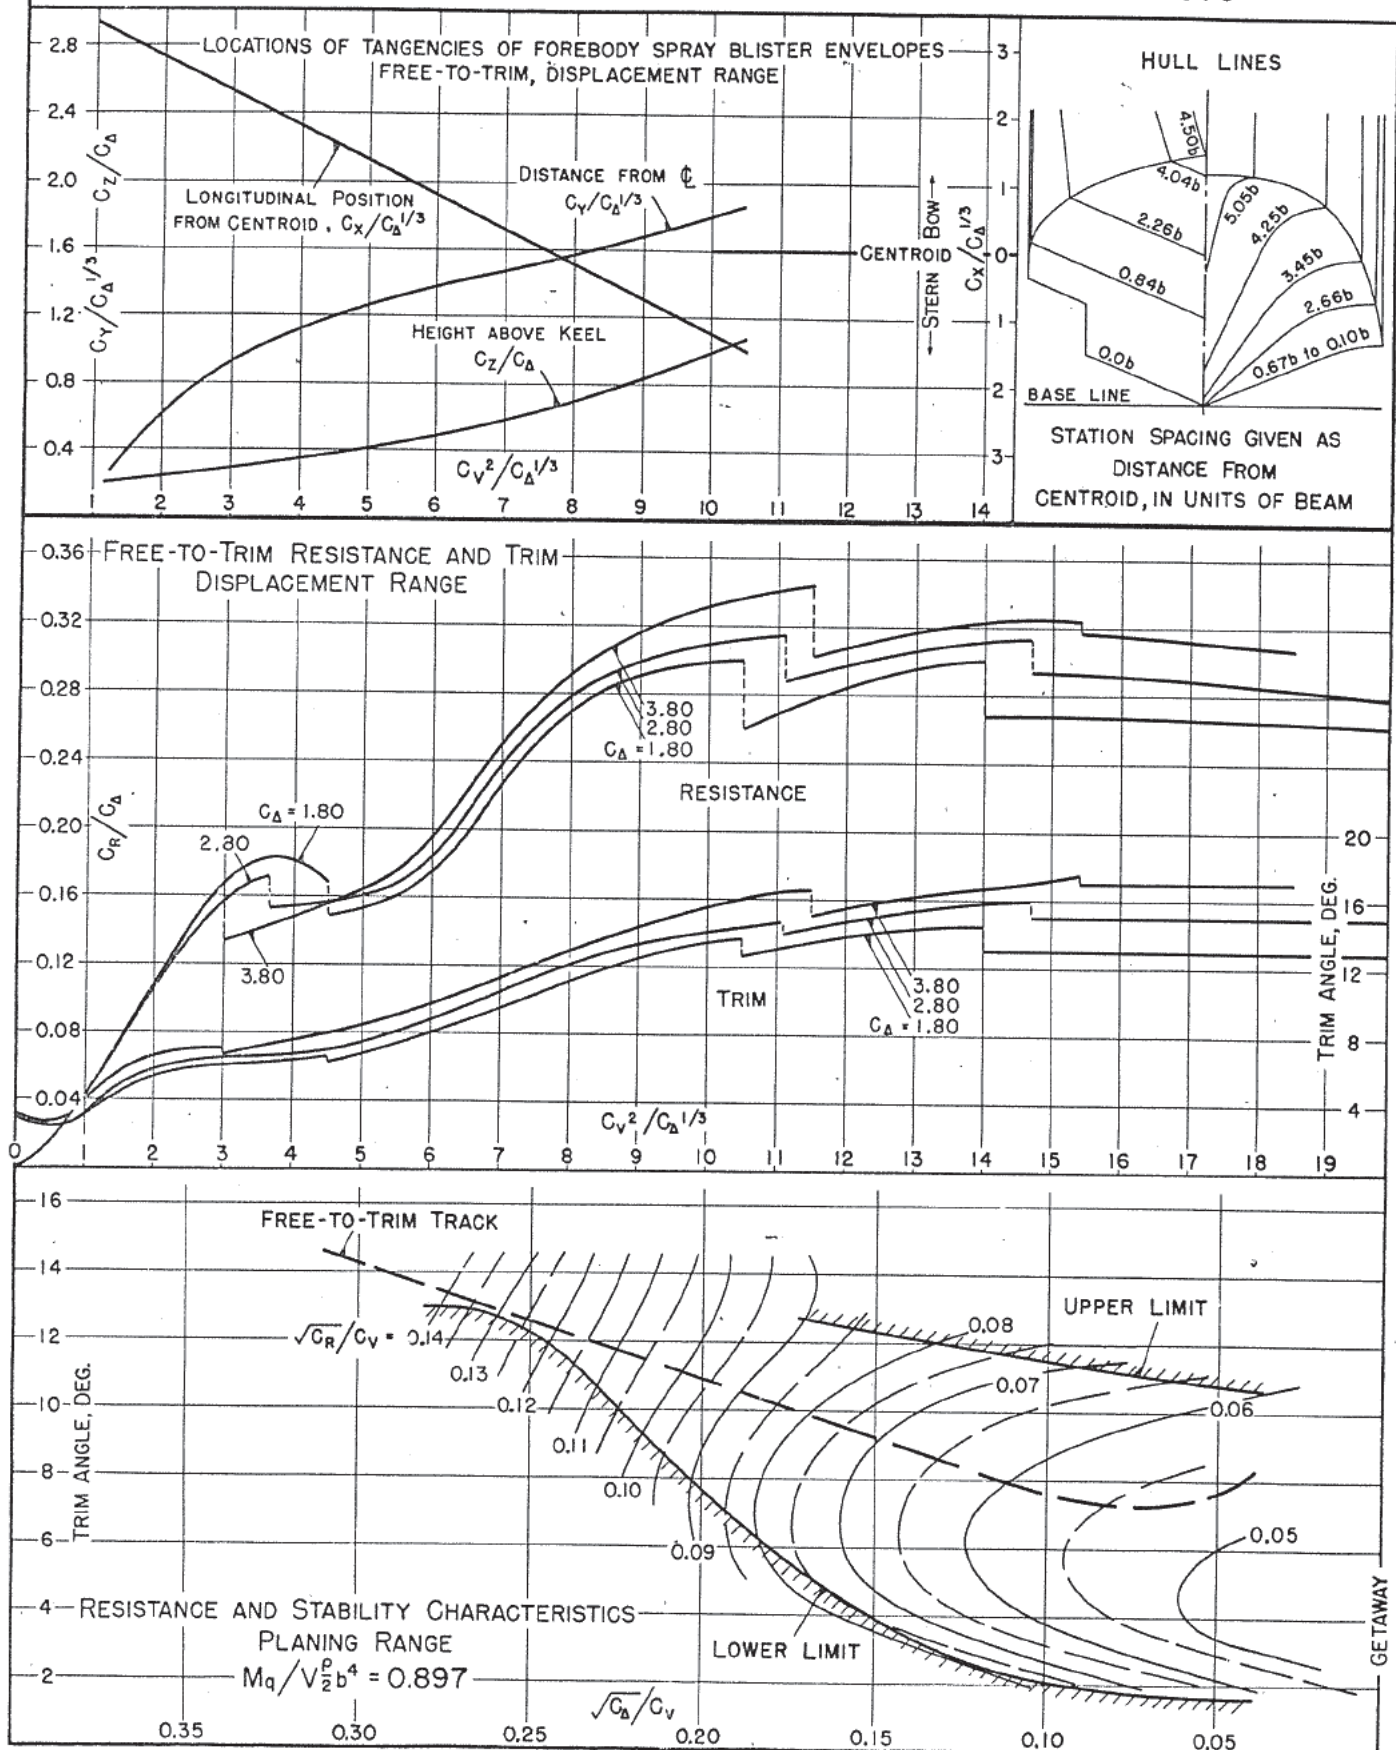 LOCATIONS OF TANGENCIES OF FOREBODY SPRAY BLISTER ENVELOPES
FREE-TO-TRIM, DISPLACEMENT RANGE
2.8
2.4
2.0
1.6
1.2
0.8
0.4
C_Z/C_Δ
C_Y/C_Δ^1/3
LONGITUDINAL POSITION
FROM CENTROID, C_X/C_Δ^1/3
DISTANCE FROM ℄
C_Y/C_Δ^1/3
HEIGHT ABOVE KEEL
C_Z/C_Δ
CENTROID
STERN BOW
C_X/C_Δ^1/3
3
2
1
0
1
2
3
C_V^2/C_Δ^1/3
1 2 3 4 5 6 7 8 9 10 11 12 13 14
HULL LINES
4.50b
4.04b
5.05b
4.25b
2.26b
3.45b
0.84b
2.66b
0.0b
0.67b to 0.10b
BASE LINE
STATION SPACING GIVEN AS
DISTANCE FROM
CENTROID, IN UNITS OF BEAM
FREE-TO-TRIM RESISTANCE AND TRIM
DISPLACEMENT RANGE
0.36
0.32
0.28
0.24
0.20
0.16
0.12
0.08
0.04
C_R/C_Δ
3.80
2.80
C_Δ = 1.80
RESISTANCE
C_Δ = 1.80
2.80
3.80
TRIM
3.80
2.80
C_Δ = 1.80
20
16
12
8
4
TRIM ANGLE, DEG.
C_V^2/C_Δ^1/3
0 1 2 3 4 5 6 7 8 9 10 11 12 13 14 15 16 17 18 19
16
14
12
10
8
6
4
2
TRIM ANGLE, DEG.
FREE-TO-TRIM TRACK
UPPER LIMIT
√C_R/C_V = 0.14
0.13
0.12
0.11
0.10
0.09
0.08
0.07
0.06
0.05
LOWER LIMIT
GETAWAY
RESISTANCE AND STABILITY CHARACTERISTICS
PLANING RANGE
M_q/V ρ/2 b^4 = 0.897
√C_Δ/C_V
0.35 0.30 0.25 0.20 0.15 0.10 0.05